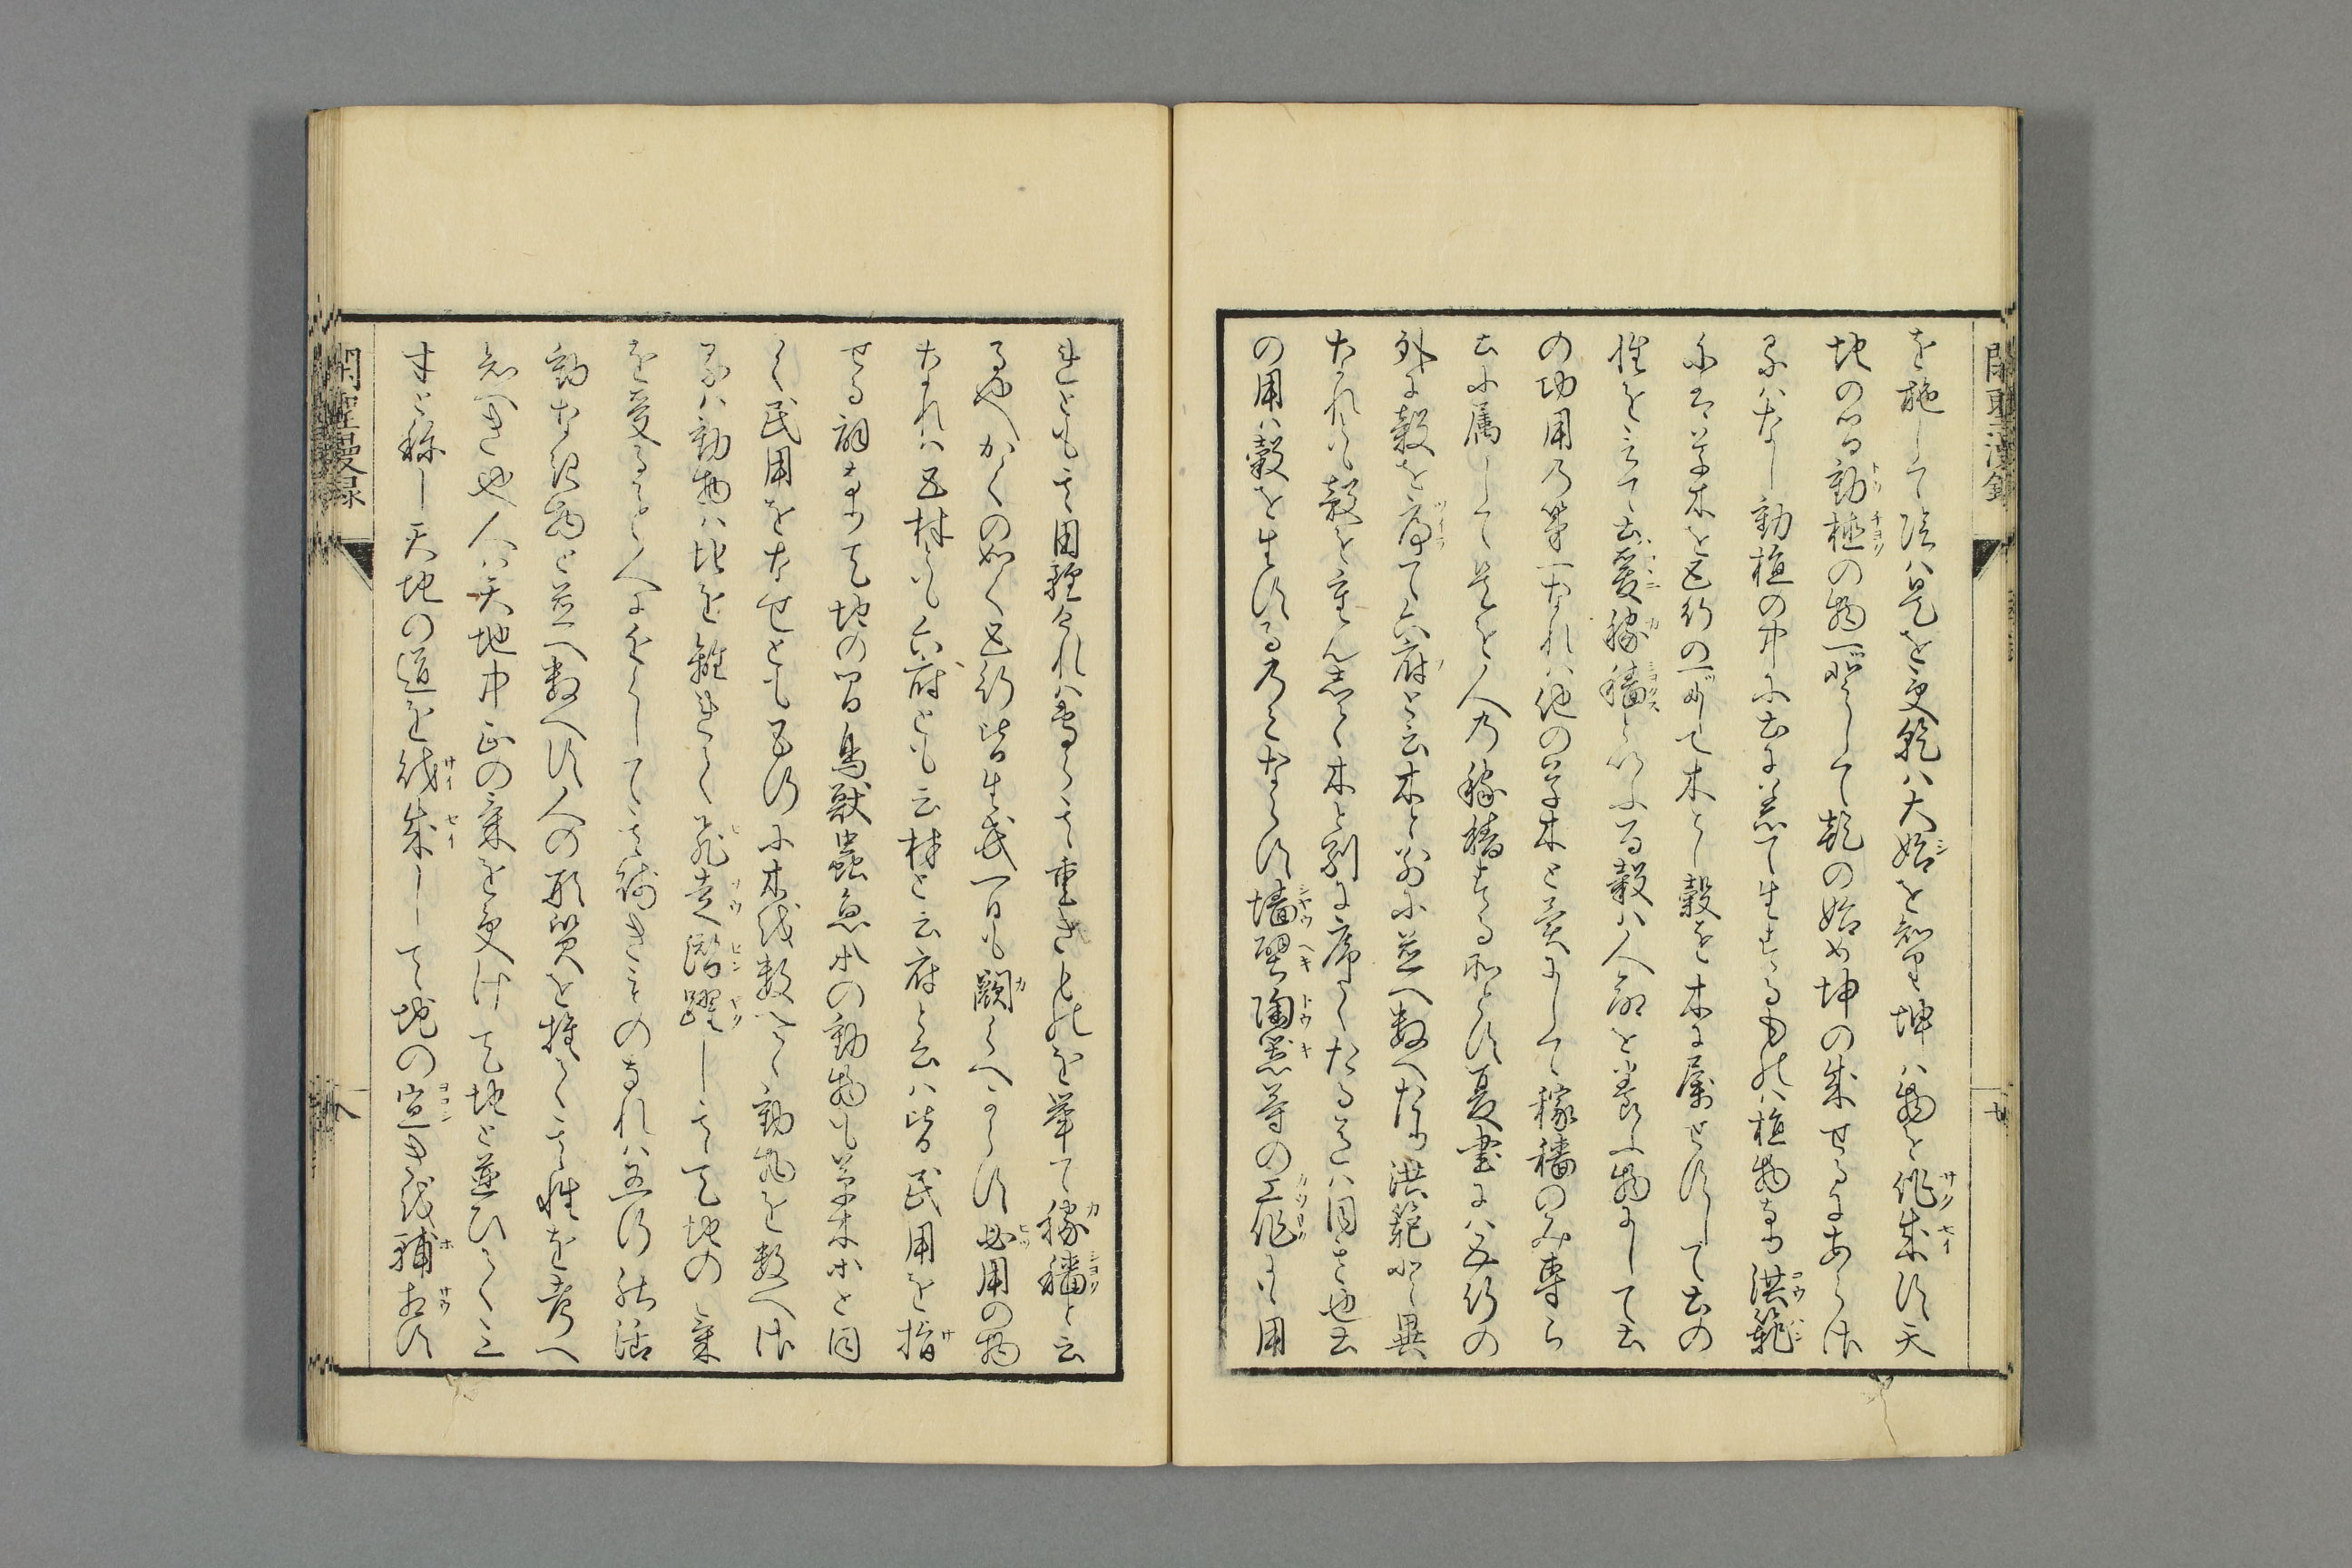 を施して陰ハ是を受乾ハ大始を知り坤ハ物を作成す天
地の間動植の物一ツとして乾の始め坤の成せるにあらさ
るハなし動植の中に土に着て生するものハ植物なり洪範
にハ草木を五行の一ツにて木とし穀を木に属せすして土の
性を云て土爰稼穡といふ五穀ハ人命を養ふ物にして土
の功用乃第一なれハ他の草木と異にして稼穡のみ専ら
土に属して是を人乃稼穡する所とす夏書にハ五行の
外に穀を序て六府と云木と別に並へ数へたり洪範と異
なれとも穀を重んして木と別に序てたるハ同き也土
の用ハ穀を生するのみならす墻壁陶器等の工作にも用
れとも其用軽けれハ専ら其重きものを挙て稼穡と云
るや〱かくの如く五行皆生民一日も闕くへからす必用の物
なれハ五材とも六府とも云材と云府と云ハ皆民用を指
せる詞なり天地の間鳥獣蟲魚木の動物も草木と同
く民用をなせとも五行に木を数へて動物を数へさ
るハ動物ハ地を離れて飛走潜躍して天地の気
を受ること人に近くして其働きもの なれハ五行 の活
動なき物と並へ数へす人の形質を推て其性を考へ
知へき也人ハ天地中正の気を受けて天地と並ひて三
才と称し天地の道を裁成して地の宜きを輔相す
閑聖漫録